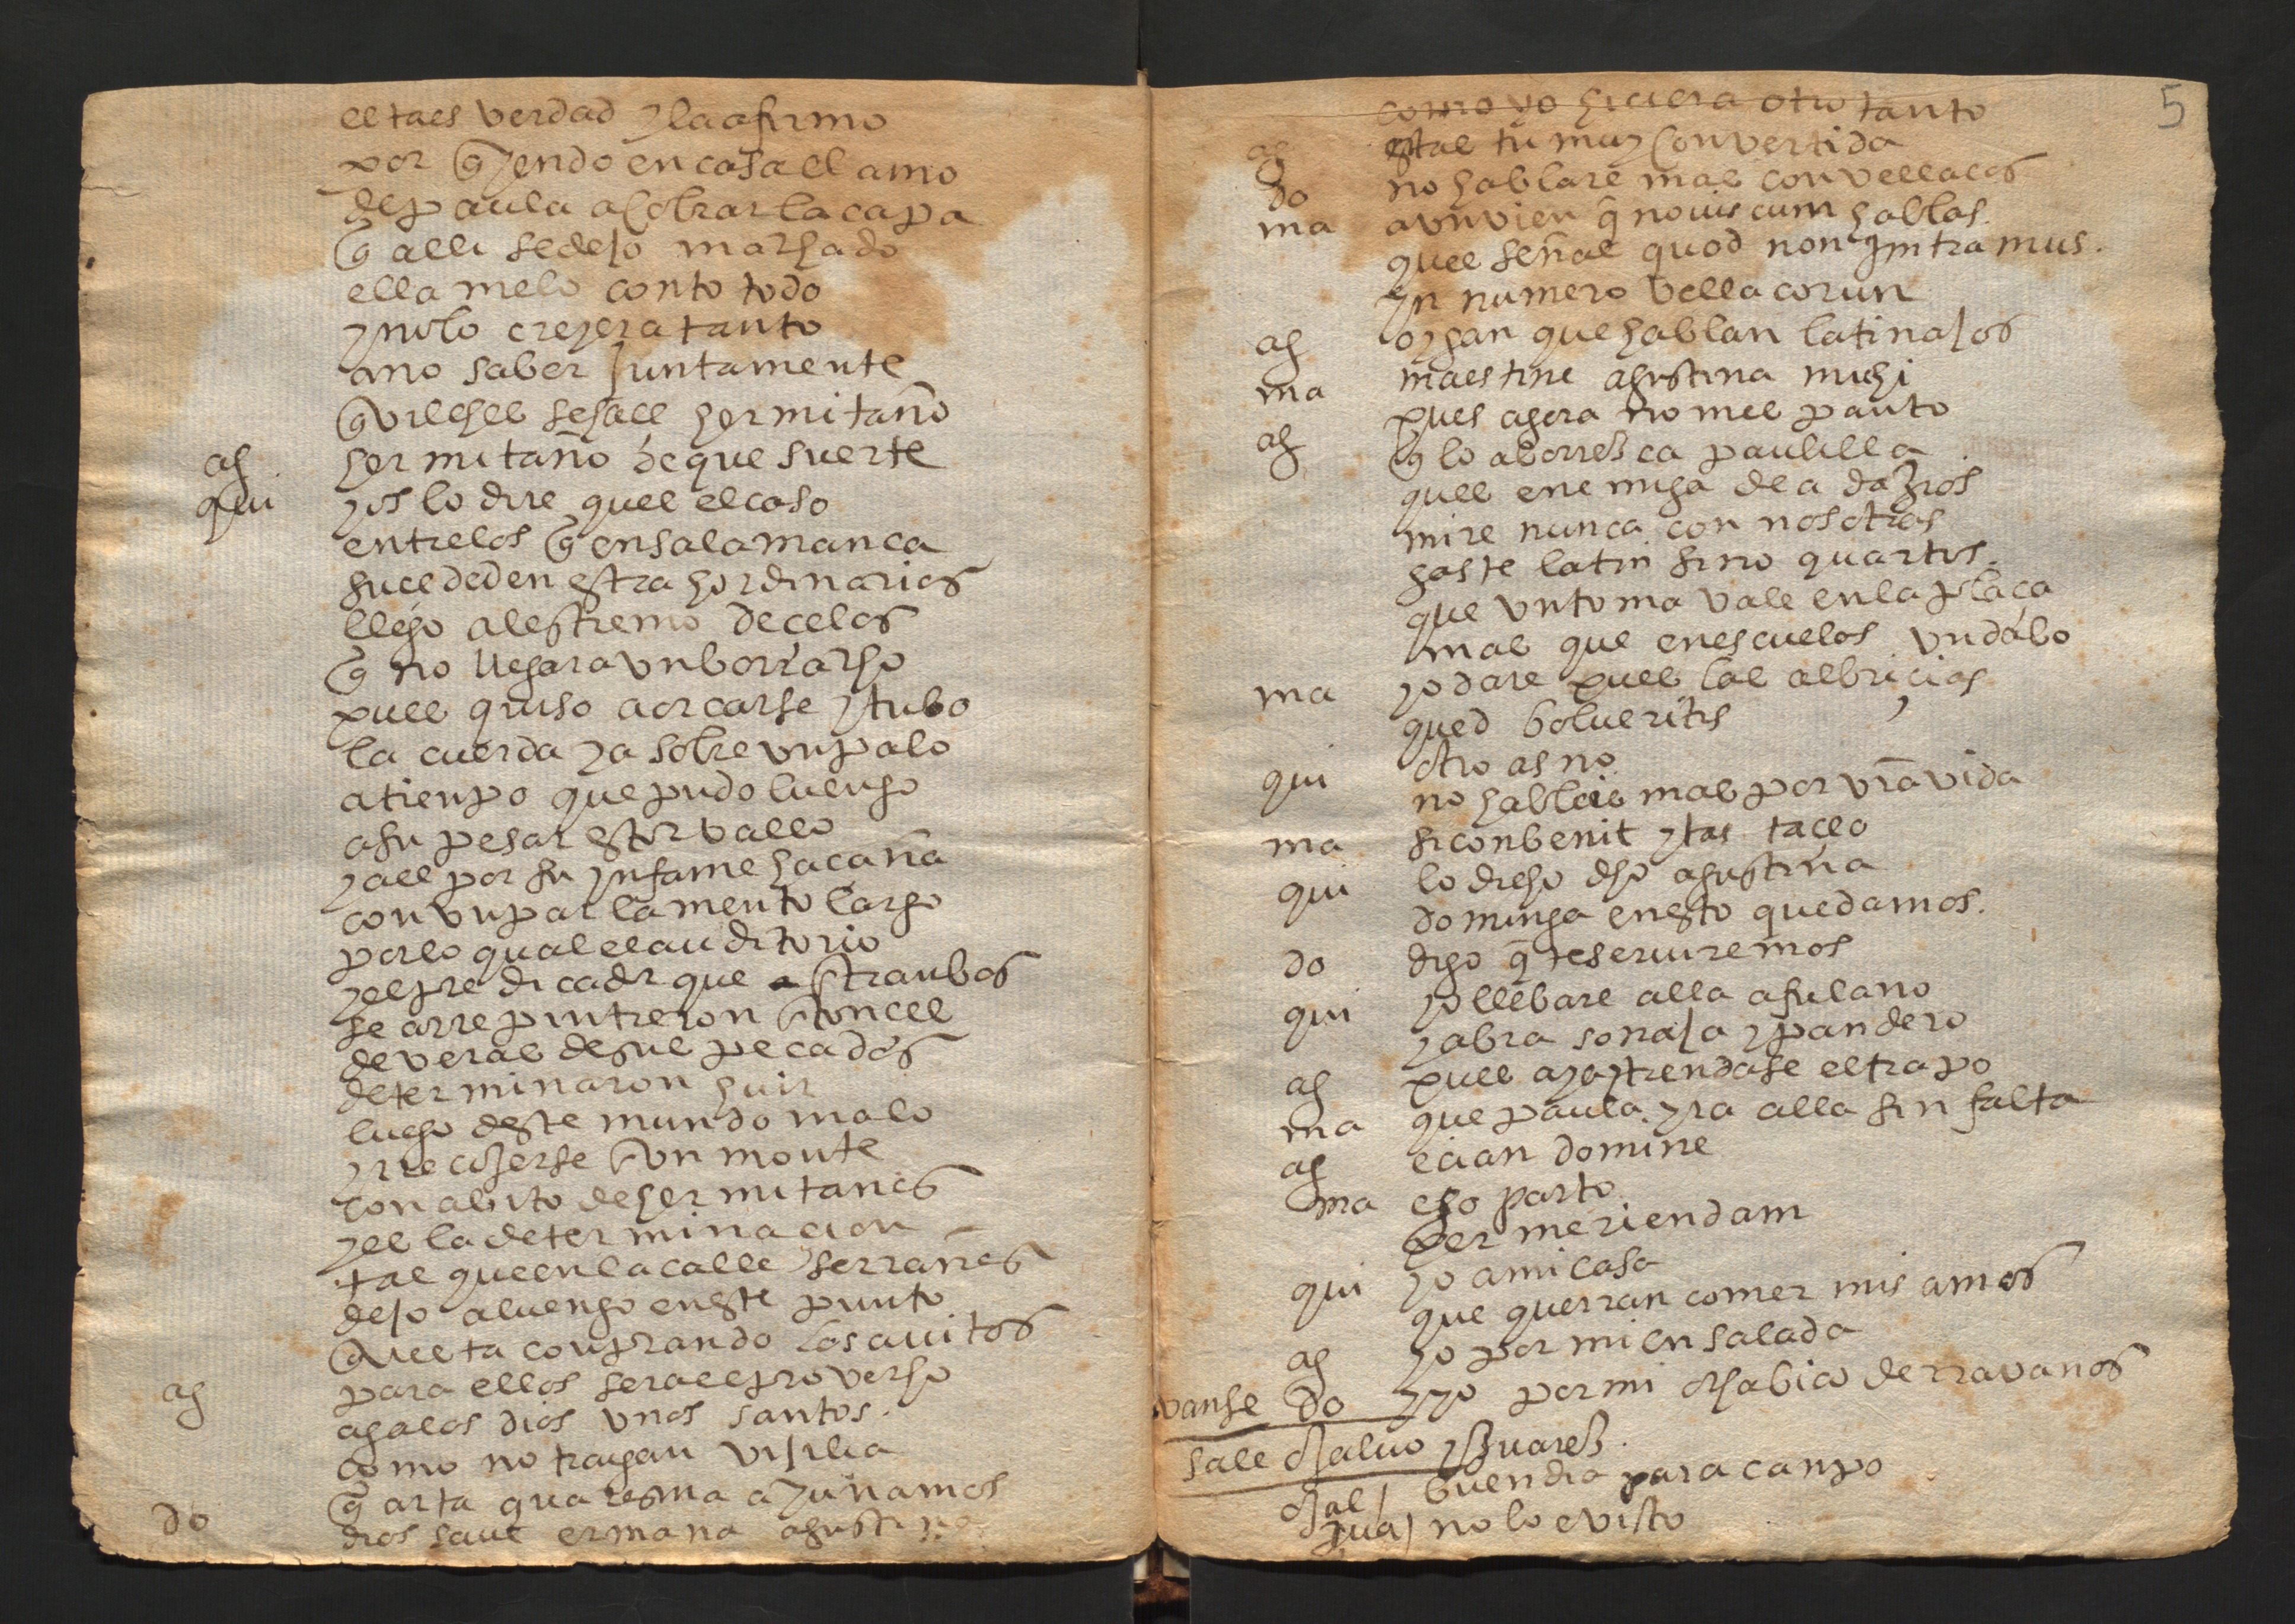 esta es verdad y la afirmo
por q̃ yendo en casa el amo
de paula a cobrar la capa
q̃ alli se dejo machado
ella melo conto todo
y nolo creyera tanto
ano saber juntamente
q̃ vilches se hace hermitaño
ag hermitaño de que suerte
qui yos lo dire ques el caso
entrelos q̃ ensalamanca
suceden estrahordinarios
llego alestremo decelos
q̃ no llegara vn borracho
pues quiso aorcarse y tubo
la cuerda ya sobre vn palo
atienpo que pudo luengo
asu pesar estorvallo
yalli por su ynfame haçaña
con vn parlamento largo
porlo qual elauditorio
yelpredicador que entranbos
se arrepintieron entonces
deveras desus pecados
determinaron huir
luego deste mundo malo
y rrecojerse en vn monte
con abito dehermitaños
yes la determinacion
tal queenla calle serranos
dejo aluengo eneste punto
questa conprando los auitos
ag para ellos sera el provecho
agalos dios vnos santos.
como no traygan vijilia
q̃ arta quaresma ayunamos
do dios save ermana agustina
5
como yo hiciera otro tanto
ag estas tu muy convertida
do no hablare mas con vellacos
ma avn vien q̃ noviscum hablas.
ques señal quod non yntramus.
yn numero vellacorun
ag oygan que hablan latinajos
ma maestine agustina michi
pues agora no mes panto
ag q̃ lo aborrezca paulilla
ques enemiga de adazios
mire nunca con nosotras
gaste latin sino quartos.
que vn toma vale enla plaça
mas que enescuelas vn dabo
ma yo dare pues las albricias
qued bolueritis
qui otro asno
no hableis mas por vr̃a vida
ma siconbenit ytas taceo
qui lo dicho dho agustina
dominga enesto quedamos.
do digo q̃ teserviremos
qui yo llebare alla afulano
y abra sonaja y pandero
ag pues aya y tiendase eltrapo
ma que paula yra alla sin falta
ag ecian domine
ma ego parto
per meriendam
qui yo ami casa
que querran comer mis amos
ag yo por mi ensalada
vanse do y yo por mi derravanos
sale y Juarez.
buendia para canpo
Jua no lo e visto